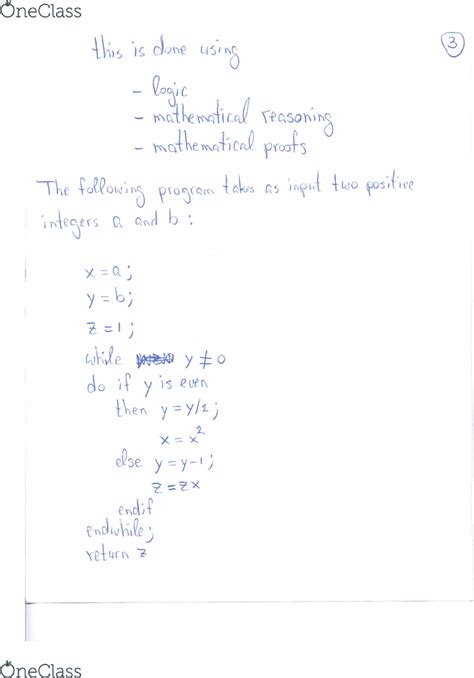 OneClass
3
this is done using
- logic
- mathematical reasoning
- mathematical proofs
The following program takes as input two positive
integers a and b :
x = a ;
y = b ;
z = 1 ;
while y ≠ 0
do if y is even
then y = y/2 ;
x = x²
else y = y-1 ;
z = zx
endif
endwhile ;
return z
OneClass